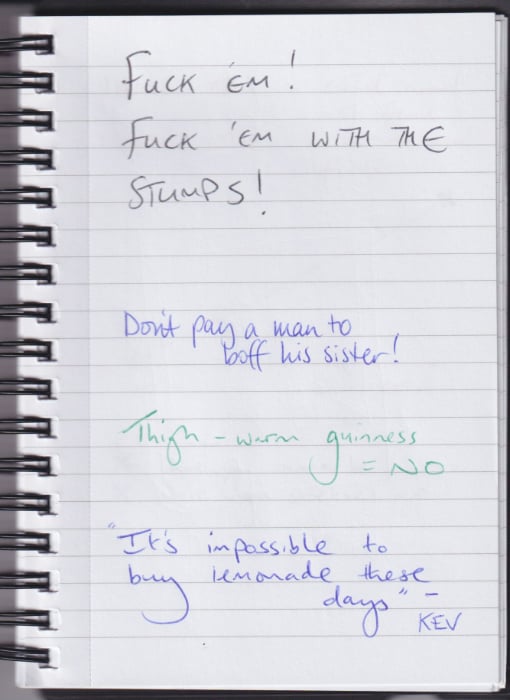 FUCK 'EM!
FUCK 'EM WITH THE
STUMPS!
Don't pay a man to
boff his sister!
Thigh-warm guinness
= NO
"It's impossible to
buy lemonade these
days" -
KEV